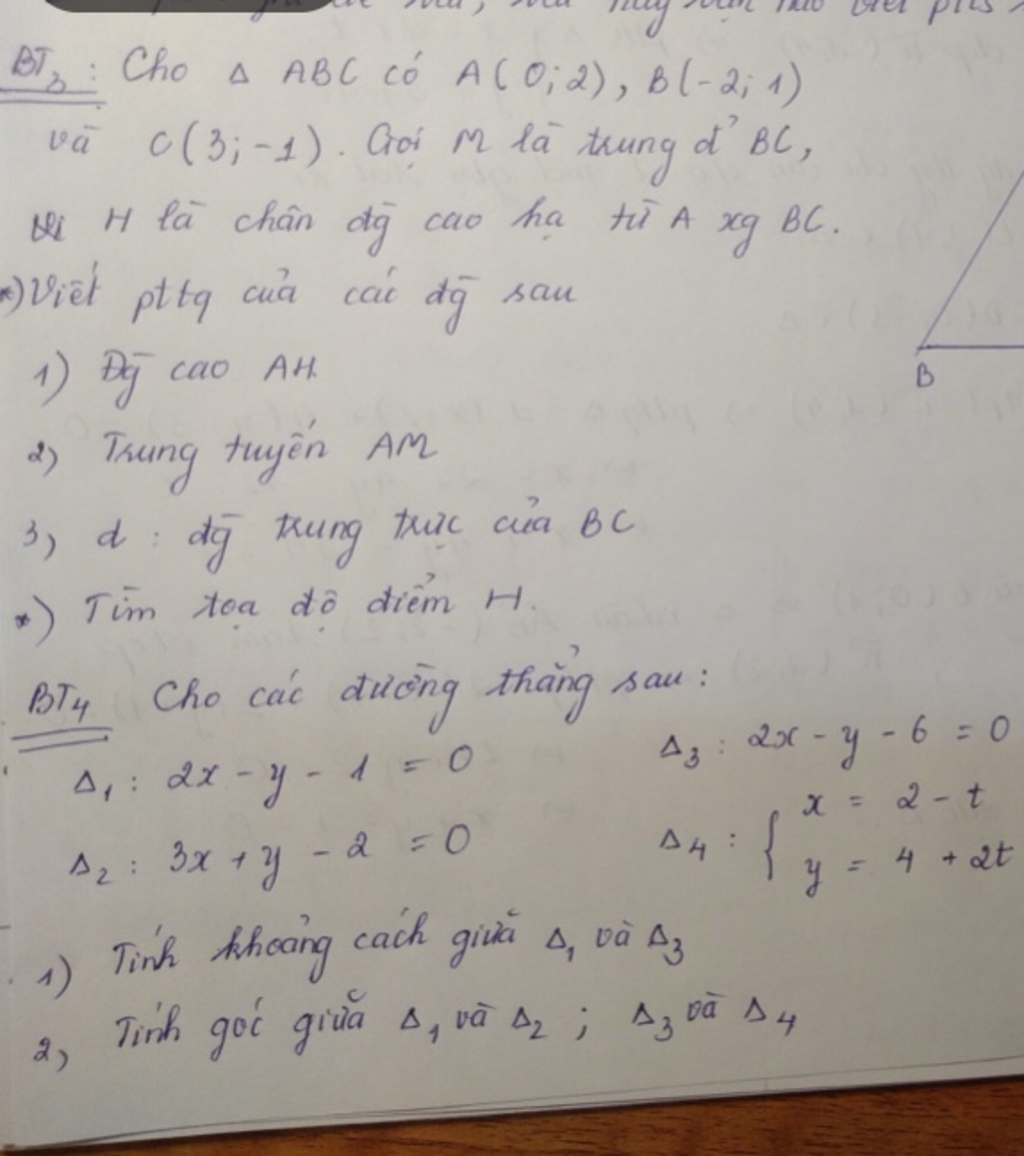 BT3 : Cho Δ ABC có A(0;2), B(-2;1)
và C(3;-1). Gọi M là trung đ' BC,
H là chân đg cao hạ từ A xg BC.
*) Viết pttq của các đg sau
1) Đg cao AH.
2) Trung tuyến AM
3) d : đg trung trực của BC
*) Tìm tọa độ điểm H.
B
BT4 Cho các đường thẳng sau :
Δ1 : 2x - y - 1 = 0
Δ3 : 2x - y - 6 = 0
Δ2 : 3x + y - 2 = 0
Δ4 : { x = 2 - t
y = 4 + 2t
1) Tính khoảng cách giữa Δ1 và Δ3
2) Tính góc giữa Δ1 và Δ2 ; Δ3 và Δ4